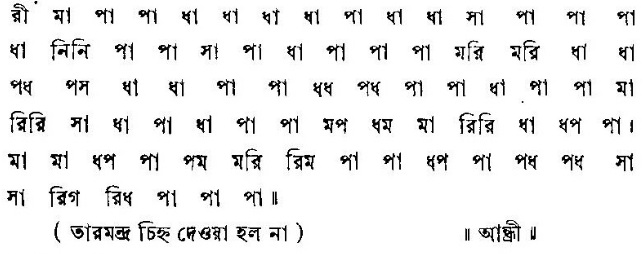 রী মা পা পা ধা ধা ধা ধা পা ধা ধা সা পা পা পা
ধা নিনি পা পা সা পা ধা পা পা পা মরি মরি ধা ধা
পধ পস ধা ধা পা পা ধধ পধ পা পা ধা পা পা মা
রিরি সা ধা পা ধা পা পা মপ ধম মা রিরি ধা ধপ পা।
মা মা ধপ পা পম মরি রিম পা পা ধপ পা পধ পধ সা
সা রিগ রিধ পা পা পা॥
( তারমন্দ্র চিহ্ন দেওয়া হল না ) ॥ আন্ধ্রী ॥